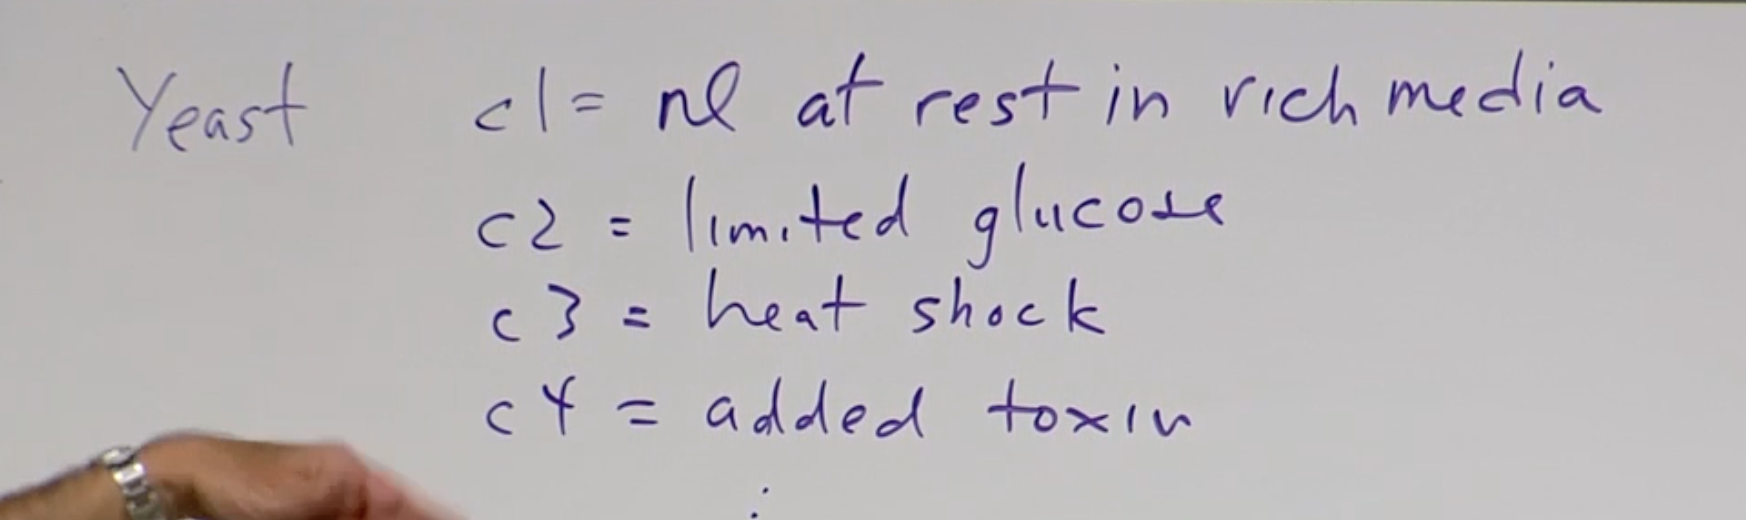 Yeast c1 = nl at rest in rich media
c2 = limited glucose
c3 = heat shock
c4 = added toxin
: